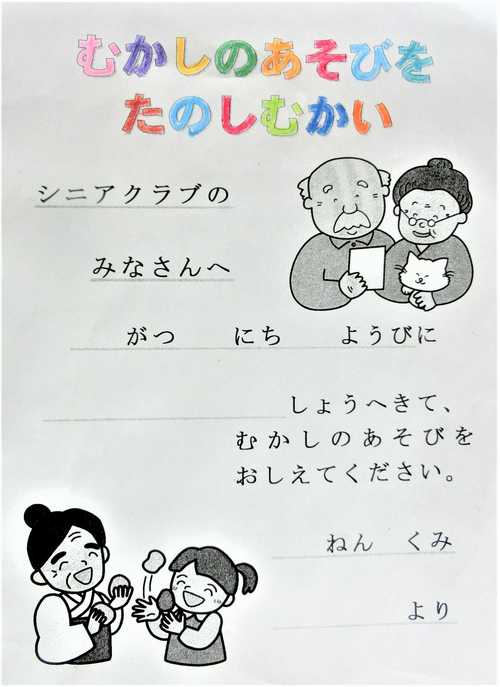 むかしのあそびを
たのしむかい
シニアクラブの
みなさんへ
がつ　にち　ようびに
しょうへきて、
むかしのあそびを
おしえてください。
ねん　くみ
より